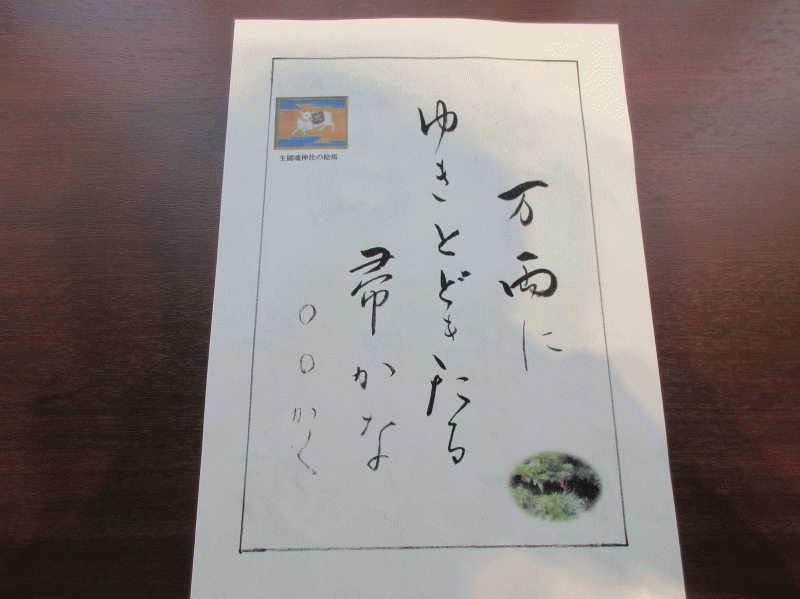 万両に
ゆきとどきたる
帚かな
〇〇かく
生國魂神社の絵馬